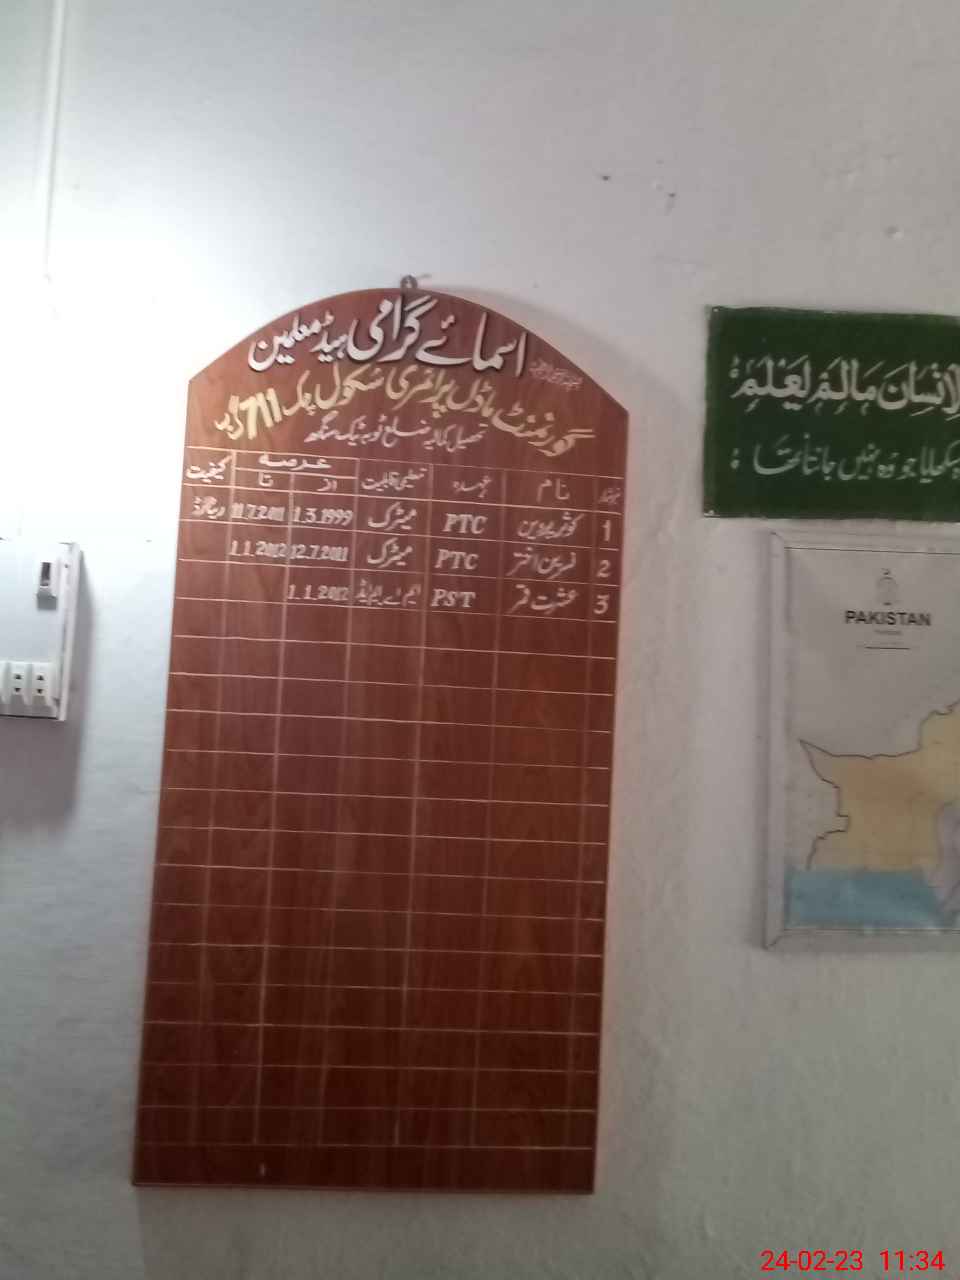 اسمائے گرامی ہیڈ معلمین
گورنمنٹ ماڈل پرائمری سکول چک 711 گ ب
تحصیل کمالیہ ضلع ٹوبہ ٹیک سنگھ
نمبر شمار نام عہدہ تعلیمی قابلیت عرصہ کیفیت
از تا
1 کوثر پروین PTC میٹرک 1.3.1999 11.7.2011 ریٹائرڈ
2 نسرین اختر PTC میٹرک 12.7.2011 1.1.2012
3 عشرت قمر PST ایم اے ایم ایڈ 1.1.2012
الْاِنْسَانَ مَا لَمْ یَعْلَمْ
سکھلایا جو وہ نہیں جانتا تھا
PAKISTAN
24-02-23 11:34